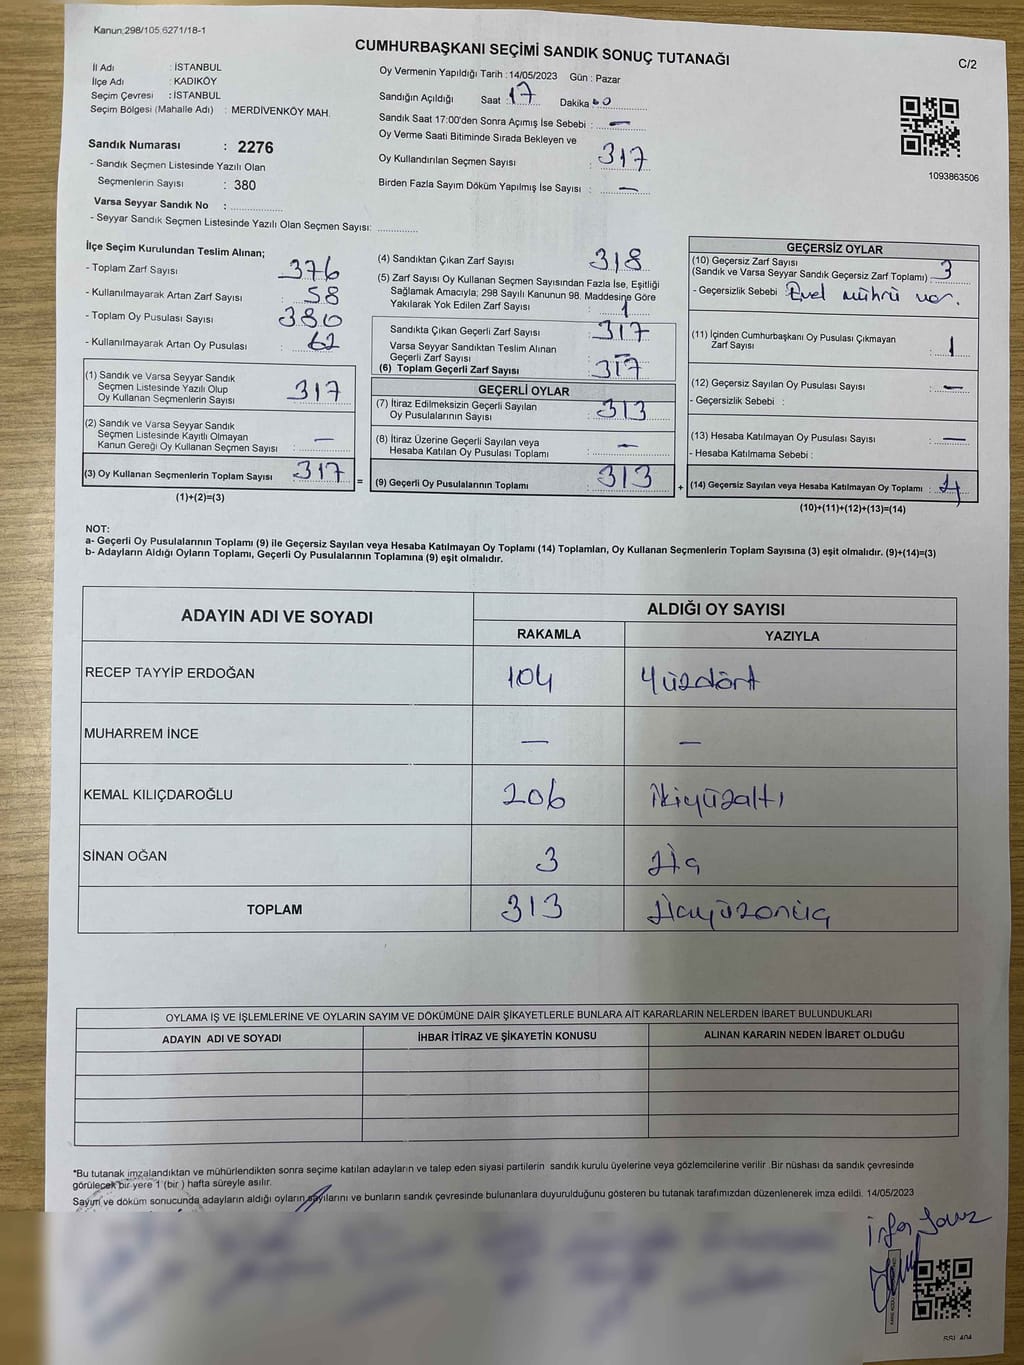 Kanun:298/105,6271/18-1
CUMHURBAŞKANI SEÇİMİ SANDIK SONUÇ TUTANAĞI
C/2
İl Adı : İSTANBUL
İlçe Adı : KADIKÖY
Seçim Çevresi : İSTANBUL
Seçim Bölgesi (Mahalle Adı) : MERDİVENKÖY MAH.
Sandık Numarası : 2276
- Sandık Seçmen Listesinde Yazılı Olan
Seçmenlerin Sayısı : 380
Varsa Seyyar Sandık No :
- Seyyar Sandık Seçmen Listesinde Yazılı Olan Seçmen Sayısı:
Oy Vermenin Yapıldığı Tarih : 14/05/2023 Gün : Pazar
Sandığın Açıldığı Saat : 17 Dakika : 00
Sandık Saat 17:00'den Sonra Açımış İse Sebebi : —
Oy Verme Saati Bitiminde Sırada Bekleyen ve
Oy Kullandırılan Seçmen Sayısı : 317
Birden Fazla Sayım Döküm Yapılmış İse Sayısı : —
1093863506
İlçe Seçim Kurulundan Teslim Alınan;
- Toplam Zarf Sayısı : 376
- Kullanılmayarak Artan Zarf Sayısı : 58
- Toplam Oy Pusulası Sayısı : 380
- Kullanılmayarak Artan Oy Pusulası : 62
(1) Sandık ve Varsa Seyyar Sandık
Seçmen Listesinde Yazılı Olup
Oy Kullanan Seçmenlerin Sayısı : 317
(2) Sandık ve Varsa Seyyar Sandık
Seçmen Listesinde Kayıtlı Olmayan
Kanun Gereği Oy Kullanan Seçmen Sayısı : —
(3) Oy Kullanan Seçmenlerin Toplam Sayısı : 317
(1)+(2)=(3)
=
(4) Sandıktan Çıkan Zarf Sayısı : 318
(5) Zarf Sayısı Oy Kullanan Seçmen Sayısından Fazla İse, Eşitliği
Sağlamak Amacıyla; 298 Sayılı Kanunun 98. Maddesine Göre
Yakılarak Yok Edilen Zarf Sayısı : 1
Sandıkta Çıkan Geçerli Zarf Sayısı : 317
Varsa Seyyar Sandıktan Teslim Alınan
Geçerli Zarf Sayısı : —
(6) Toplam Geçerli Zarf Sayısı : 317
GEÇERLİ OYLAR
(7) İtiraz Edilmeksizin Geçerli Sayılan
Oy Pusulalarının Sayısı : 313
(8) İtiraz Üzerine Geçerli Sayılan veya
Hesaba Katılan Oy Pusulası Toplamı : —
(9) Geçerli Oy Pusulalarının Toplamı : 313
+
GEÇERSİZ OYLAR
(10) Geçersiz Zarf Sayısı
(Sandık ve Varsa Seyyar Sandık Geçersiz Zarf Toplamı) : 3
- Geçersizlik Sebebi : Evet mührü var.
(11) İçinden Cumhurbaşkanı Oy Pusulası Çıkmayan
Zarf Sayısı : 1
(12) Geçersiz Sayılan Oy Pusulası Sayısı : —
- Geçersizlik Sebebi :
(13) Hesaba Katılmayan Oy Pusulası Sayısı : —
- Hesaba Katılmama Sebebi :
(14) Geçersiz Sayılan veya Hesaba Katılmayan Oy Toplamı : 4
(10)+(11)+(12)+(13)=(14)
NOT:
a- Geçerli Oy Pusulalarının Toplamı (9) ile Geçersiz Sayılan veya Hesaba Katılmayan Oy Toplamı (14) Toplamları, Oy Kullanan Seçmenlerin Toplam Sayısına (3) eşit olmalıdır. (9)+(14)=(3)
b- Adayların Aldığı Oyların Toplamı, Geçerli Oy Pusulalarının Toplamına (9) eşit olmalıdır.
ADAYIN ADI VE SOYADI ALDIĞI OY SAYISI
RAKAMLA YAZIYLA
RECEP TAYYİP ERDOĞAN 104 Yüzdört
MUHARREM İNCE — —
KEMAL KILIÇDAROĞLU 206 ikiyüzaltı
SİNAN OĞAN 3 Üç
TOPLAM 313 Üçyüzonüç
OYLAMA İŞ VE İŞLEMLERİNE VE OYLARIN SAYIM VE DÖKÜMÜNE DAİR ŞİKAYETLERLE BUNLARA AİT KARARLARIN NELERDEN İBARET BULUNDUKLARI
ADAYIN ADI VE SOYADI İHBAR İTİRAZ VE ŞİKAYETİN KONUSU ALINAN KARARIN NEDEN İBARET OLDUĞU
*Bu tutanak imzalandıktan ve mühürlendikten sonra seçime katılan adayların ve talep eden siyasi partilerin sandık kurulu üyelerine veya gözlemcilerine verilir .Bir nüshası da sandık çevresinde
görülecek bir yere 1 (bir ) hafta süreyle asılır.
Sayım ve döküm sonucunda adayların aldığı oyların sayılarını ve bunların sandık çevresinde bulunanlara duyurulduğunu gösteren bu tutanak tarafımızdan düzenlenerek imza edildi. 14/05/2023